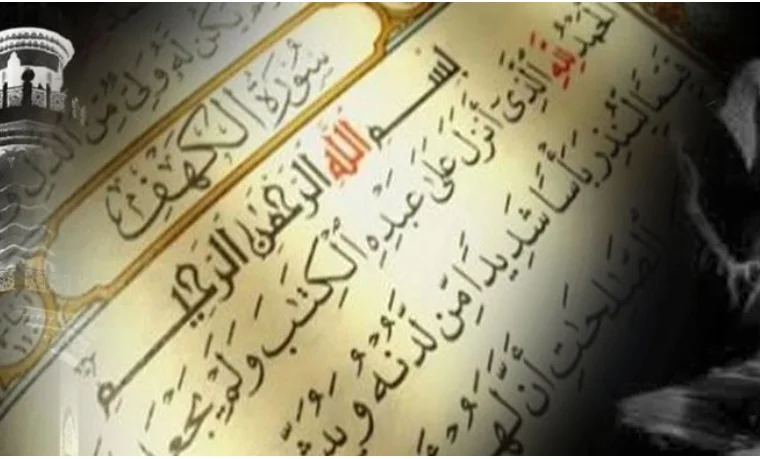 يَكُن لَّهُ وَلِيٌّ مِّنَ الذُّلِّ
سُورَةُ الْكَهْفِ
بِسْمِ اللَّهِ الرَّحْمَٰنِ الرَّحِيمِ
الْحَمْدُ لِلَّهِ الَّذِي أَنزَلَ عَلَىٰ عَبْدِهِ الْكِتَٰبَ وَلَمْ يَجْعَل
قَيِّمًا لِّيُنذِرَ بَأْسًا شَدِيدًا مِّن لَّدُنْهُ
الصَّٰلِحَٰتِ أَنَّ لَهُمْ